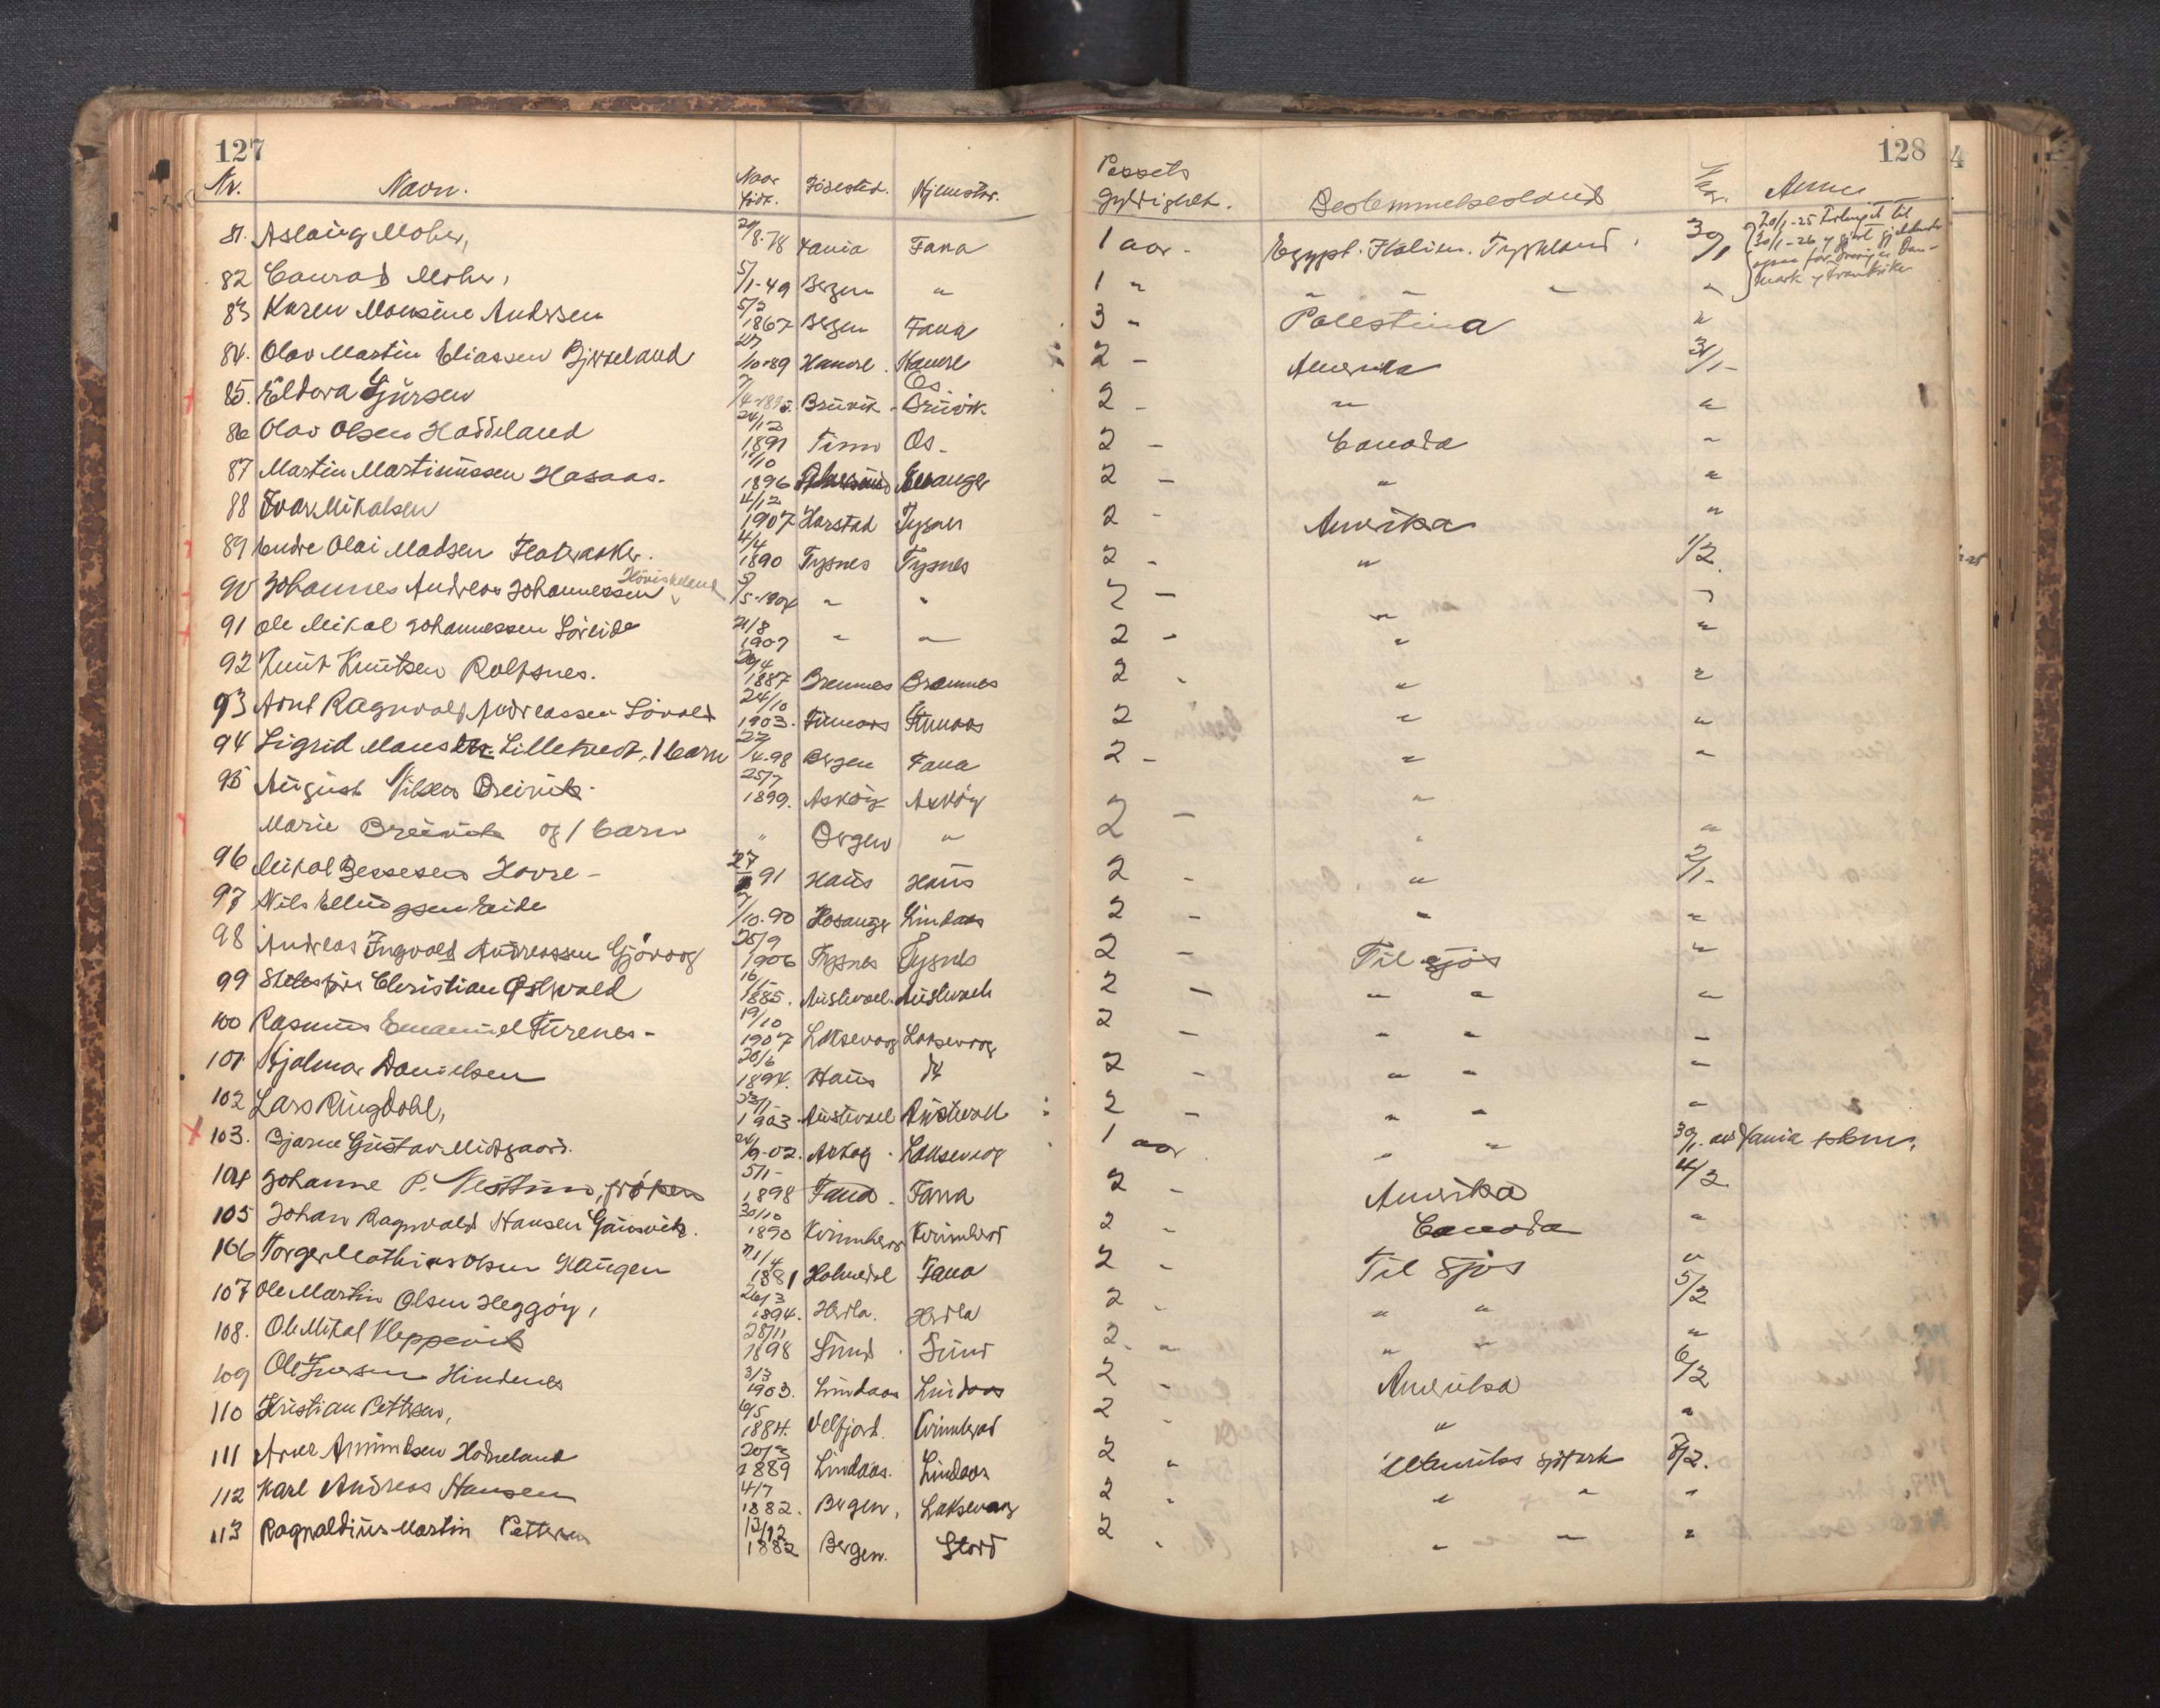 127
128
Nr. Navn. Naar född. Födested. Hjemster.
Passets Gyldighet. Bestemmelsesland Anm.
81. Aslaug Mohr, 8.78 Fania Fana 1 aar - Egypt. Italien. Tyskland 30/1 20/1-25 forlenget til 30/1-26 og gjort gjeldende for Sverige Danmark og Frankrike
82 Conrad Mohr, 5/1-49 Bergen " 1 " " " " "
83 Karen Monsine Andersen 5/2 1867 Bergen Fana 3 " Palestina "
84. Olav Martin Eliassen Bjørkeland /10-89 Hamre. Hamre 2 - Amerika 31/1-
85. Eldora Sjursen Bruvik - Os Bruvik 2 - " "
86 Olav Olsen Haddeland 24/12 1891 Finn Os - 2 - Canada "
87 Martin Martinussen Hasaas. 11/10 1896 2 - " "
88 Ivar Mikalsen 4/12 1907 Harstad Tysnes 2 - Amerika "
89 Endre Olai Madsen Flateraaker. 4/4 1890 Tysnes Tysnes 2 - " 1/2.
90 Johannes Andreas Johannessen Høviskeland 5/5-1904 " " 2 - " "
91 Ole Mikal Johannessen Söreide 21/8 1907 " " 2 - " "
92 Knut Knutsen Rolfsnes. 20/4 1887 Bremnes Bremnes 2 - " "
93 Arnt Ragnvald Andreassen Lövold 24/10 1903. Finnaas Finnaas 2 " "
94 Sigrid Mons Lilletvedt, 1 barn 22/4.98 Bergen Fana 2 - " "
95 August Nilsen Breivik - 25/7 1899. Asköy Asköy 2 - "
Marie Breivik og 1 barn " Bergen " 2 " "
96 Mikal Bessesen Hovre - 27 91 Haus Haus 2 - " 2/1-
97 Nils Ellingsen Eide 7/10.90 Hosanger Lindaas 2 - " "
98 Andreas Ingvald Andreassen Gjövaag 25/9 1906 Tysnes Tysnes 2 - Til sjös "
99 Christian Östervold 16/1- 1885. Austevoll. Austevoll 2 - " " "
100 Rasmus Emanuel Furenes - 19/10 1907 Laksevaag Laksevaag 2 - " " "
101. Hjalmar Danielsen 20/6 1894. Haus do 2 - " " "
102 Lars Ringdahl, 23/1- 1903. Austevoll Austevoll 2 - " " "
103. Bjarne Gustav Midtgaard. 24/9-02. Askøy - Laksevaag 1 aar " " 30/1. av Fania
104 Johanne P. Vesttun, frøken 5/1- 1898 Fana - Fana 2 - Amerika 4/2
105 Johan Ragnvald Hansen Gausvik. 30/10 1890 Kvinnherad Kvinnherad 2 - Canada "
106 Torger Mathias Olsen Haugen 21/4 1881 Holmedal Fana 2 - Til sjös "
107 Ole Martin Olsen Heggöy, 26/3 1894. Herdla. Herdla 2 - " " 5/2
108. Ole Mikal Kleppevik 28/11 1898 Sund - Sund 2. " " " "
109 Ole Iversen Hindenes 3/3 1903. Lindaas Lindaas 2 - Amerika 6/2
110 Kristian Pettersen, 6/5 1884. Velfjord. Kvinnherad 2 - " "
111 Arne Amundsen Hodneland 20/2 1889 Lindaas. Lindaas 2 " Utenriks sjöfark 7/2.
112 Karl Andreas Hansen 4/7 1882. Bergen, Laksevaag 2 " " " "
113 Ragnvaldius Martin Pettersen 13/12 1882 Bergen. Stord 2 " " " "